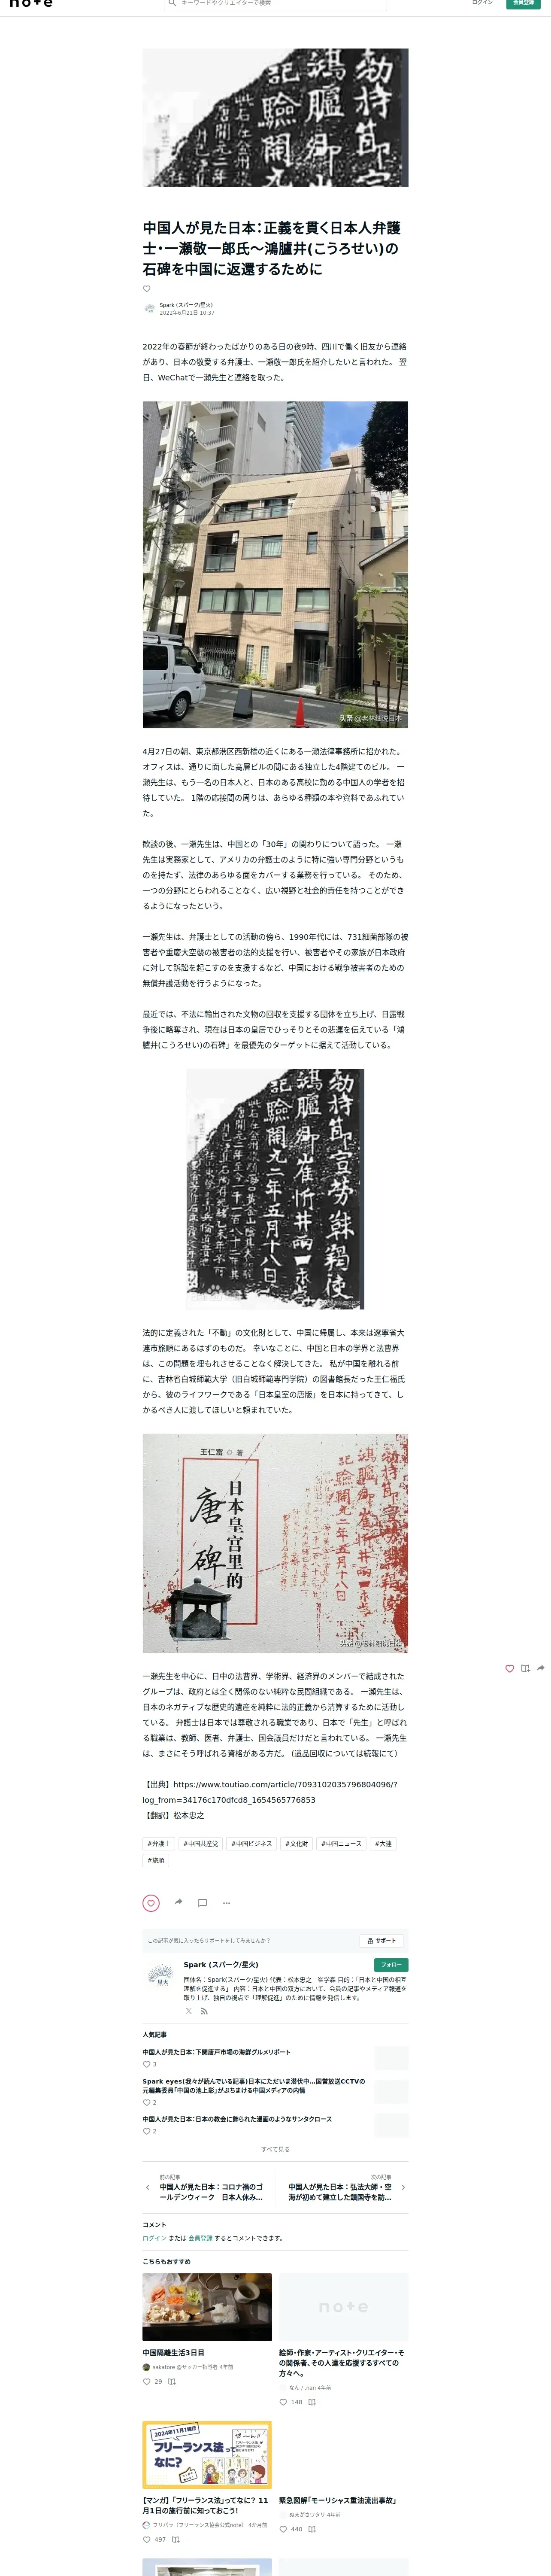 note
キーワードやクリエイターで検索
ログイン
会員登録
中国人が見た日本：正義を貫く日本人弁護
士・一瀬敬一郎氏～鴻臚井(こうろせい)の
石碑を中国に返還するために
Spark (スパーク/星火)
2022年6月21日 10:37
2022年の春節が終わったばかりのある日の夜9時、四川で働く旧友から連絡
があり、日本の敬愛する弁護士、一瀬敬一郎氏を紹介したいと言われた。 翌
日、WeChatで一瀬先生と連絡を取った。
头条 @老林细说日本
4月27日の朝、東京都港区西新橋の近くにある一瀬法律事務所に招かれた。
オフィスは、通りに面した高層ビルの間にある独立した4階建てのビル。 一
瀬先生は、もう一名の日本人と、日本のある高校に勤める中国人の学者を招
待していた。 1階の応接間の周りは、あらゆる種類の本や資料であふれてい
た。
歓談の後、一瀬先生は、中国との「30年」の関わりについて語った。 一瀬
先生は実務家として、アメリカの弁護士のように特に強い専門分野というも
のを持たず、法律のあらゆる面をカバーする業務を行っている。 そのため、
一つの分野にとらわれることなく、広い視野と社会的責任を持つことができ
るようになったという。
一瀬先生は、弁護士としての活動の傍ら、1990年代には、731細菌部隊の被
害者や重慶大空襲の被害者の法的支援を行い、被害者やその家族が日本政府
に対して訴訟を起こすのを支援するなど、中国における戦争被害者のための
無償弁護活動を行うようになった。
最近では、不法に輸出された文物の回収を支援する団体を立ち上げ、日露戦
争後に略奪され、現在は日本の皇居でひっそりとその悲運を伝えている「鴻
臚井(こうろせい)の石碑」を最優先のターゲットに据えて活動している。
法的に定義された「不動」の文化財として、中国に帰属し、本来は遼寧省大
連市旅順にあるはずのものだ。 幸いなことに、中国と日本の学界と法曹界
は、この問題を埋もれさせることなく解決してきた。 私が中国を離れる前
に、吉林省白城師範大学（旧白城師範専門学院）の図書館長だった王仁福氏
から、彼のライフワークである「日本皇室の唐版」を日本に持ってきて、し
かるべき人に渡してほしいと頼まれていた。
王仁富 著
日本皇宮里的
唐碑
头条 @老林细说日本
一瀬先生を中心に、日中の法曹界、学術界、経済界のメンバーで結成された
グループは、政府とは全く関係のない純粋な民間組織である。 一瀬先生は、
日本のネガティブな歴史的遺産を純粋に法的正義から清算するために活動し
ている。 弁護士は日本では尊敬される職業であり、日本で「先生」と呼ばれ
る職業は、教師、医者、弁護士、国会議員だけだと言われている。 一瀬先生
は、まさにそう呼ばれる資格がある方だ。 (遺品回収については続報にて）
【出典】https://www.toutiao.com/article/7093102035796804096/?
log_from=34176c170dfcd8_1654565776853
【翻訳】松本忠之
#弁護士
#中国共産党
#中国ビジネス
#文化財
#中国ニュース
#大連
#旅順
この記事が気に入ったらサポートをしてみませんか？
サポート
星火
Spark (スパーク/星火)
フォロー
団体名：Spark(スパーク/星火) 代表：松本忠之　崔学森 目的：「日本と中国の相互
理解を促進する」 内容：日本と中国の双方において、会員の記事やメディア報道を
取り上げ、独自の視点で「理解促進」のために情報を発信します。
人気記事
中国人が見た日本：下関唐戸市場の海鮮グルメリポート
3
Spark eyes(我々が読んでいる記事)日本にただいま潜伏中…国営放送CCTVの
元編集委員「中国の池上彰」がぶちまける中国メディアの内情
2
中国人が見た日本：日本の教会に飾られた漫画のようなサンタクロース
2
すべて見る
前の記事
中国人が見た日本：コロナ禍のゴ
ールデンウィーク　日本人休み…
次の記事
中国人が見た日本：弘法大師・空
海が初めて建立した鎮国寺を訪…
コメント
ログイン または 会員登録 するとコメントできます。
こちらもおすすめ
note
中国隔離生活3日目
sakatore @サッカー指導者 4年前
29
絵師・作家・アーティスト・クリエイター・そ
の関係者、その人達を応援するすべての
方々へ。
なん / .nan 4年前
148
2024年11月1日施行
フリーランス法って
なに？
【マンガ】「フリーランス法」ってなに？ 11
月1日の施行前に知っておこう！
フリパラ（フリーランス協会公式note） 4か月前
497
緊急図解「モーリシャス重油流出事故」
ぬまがさワタリ 4年前
440